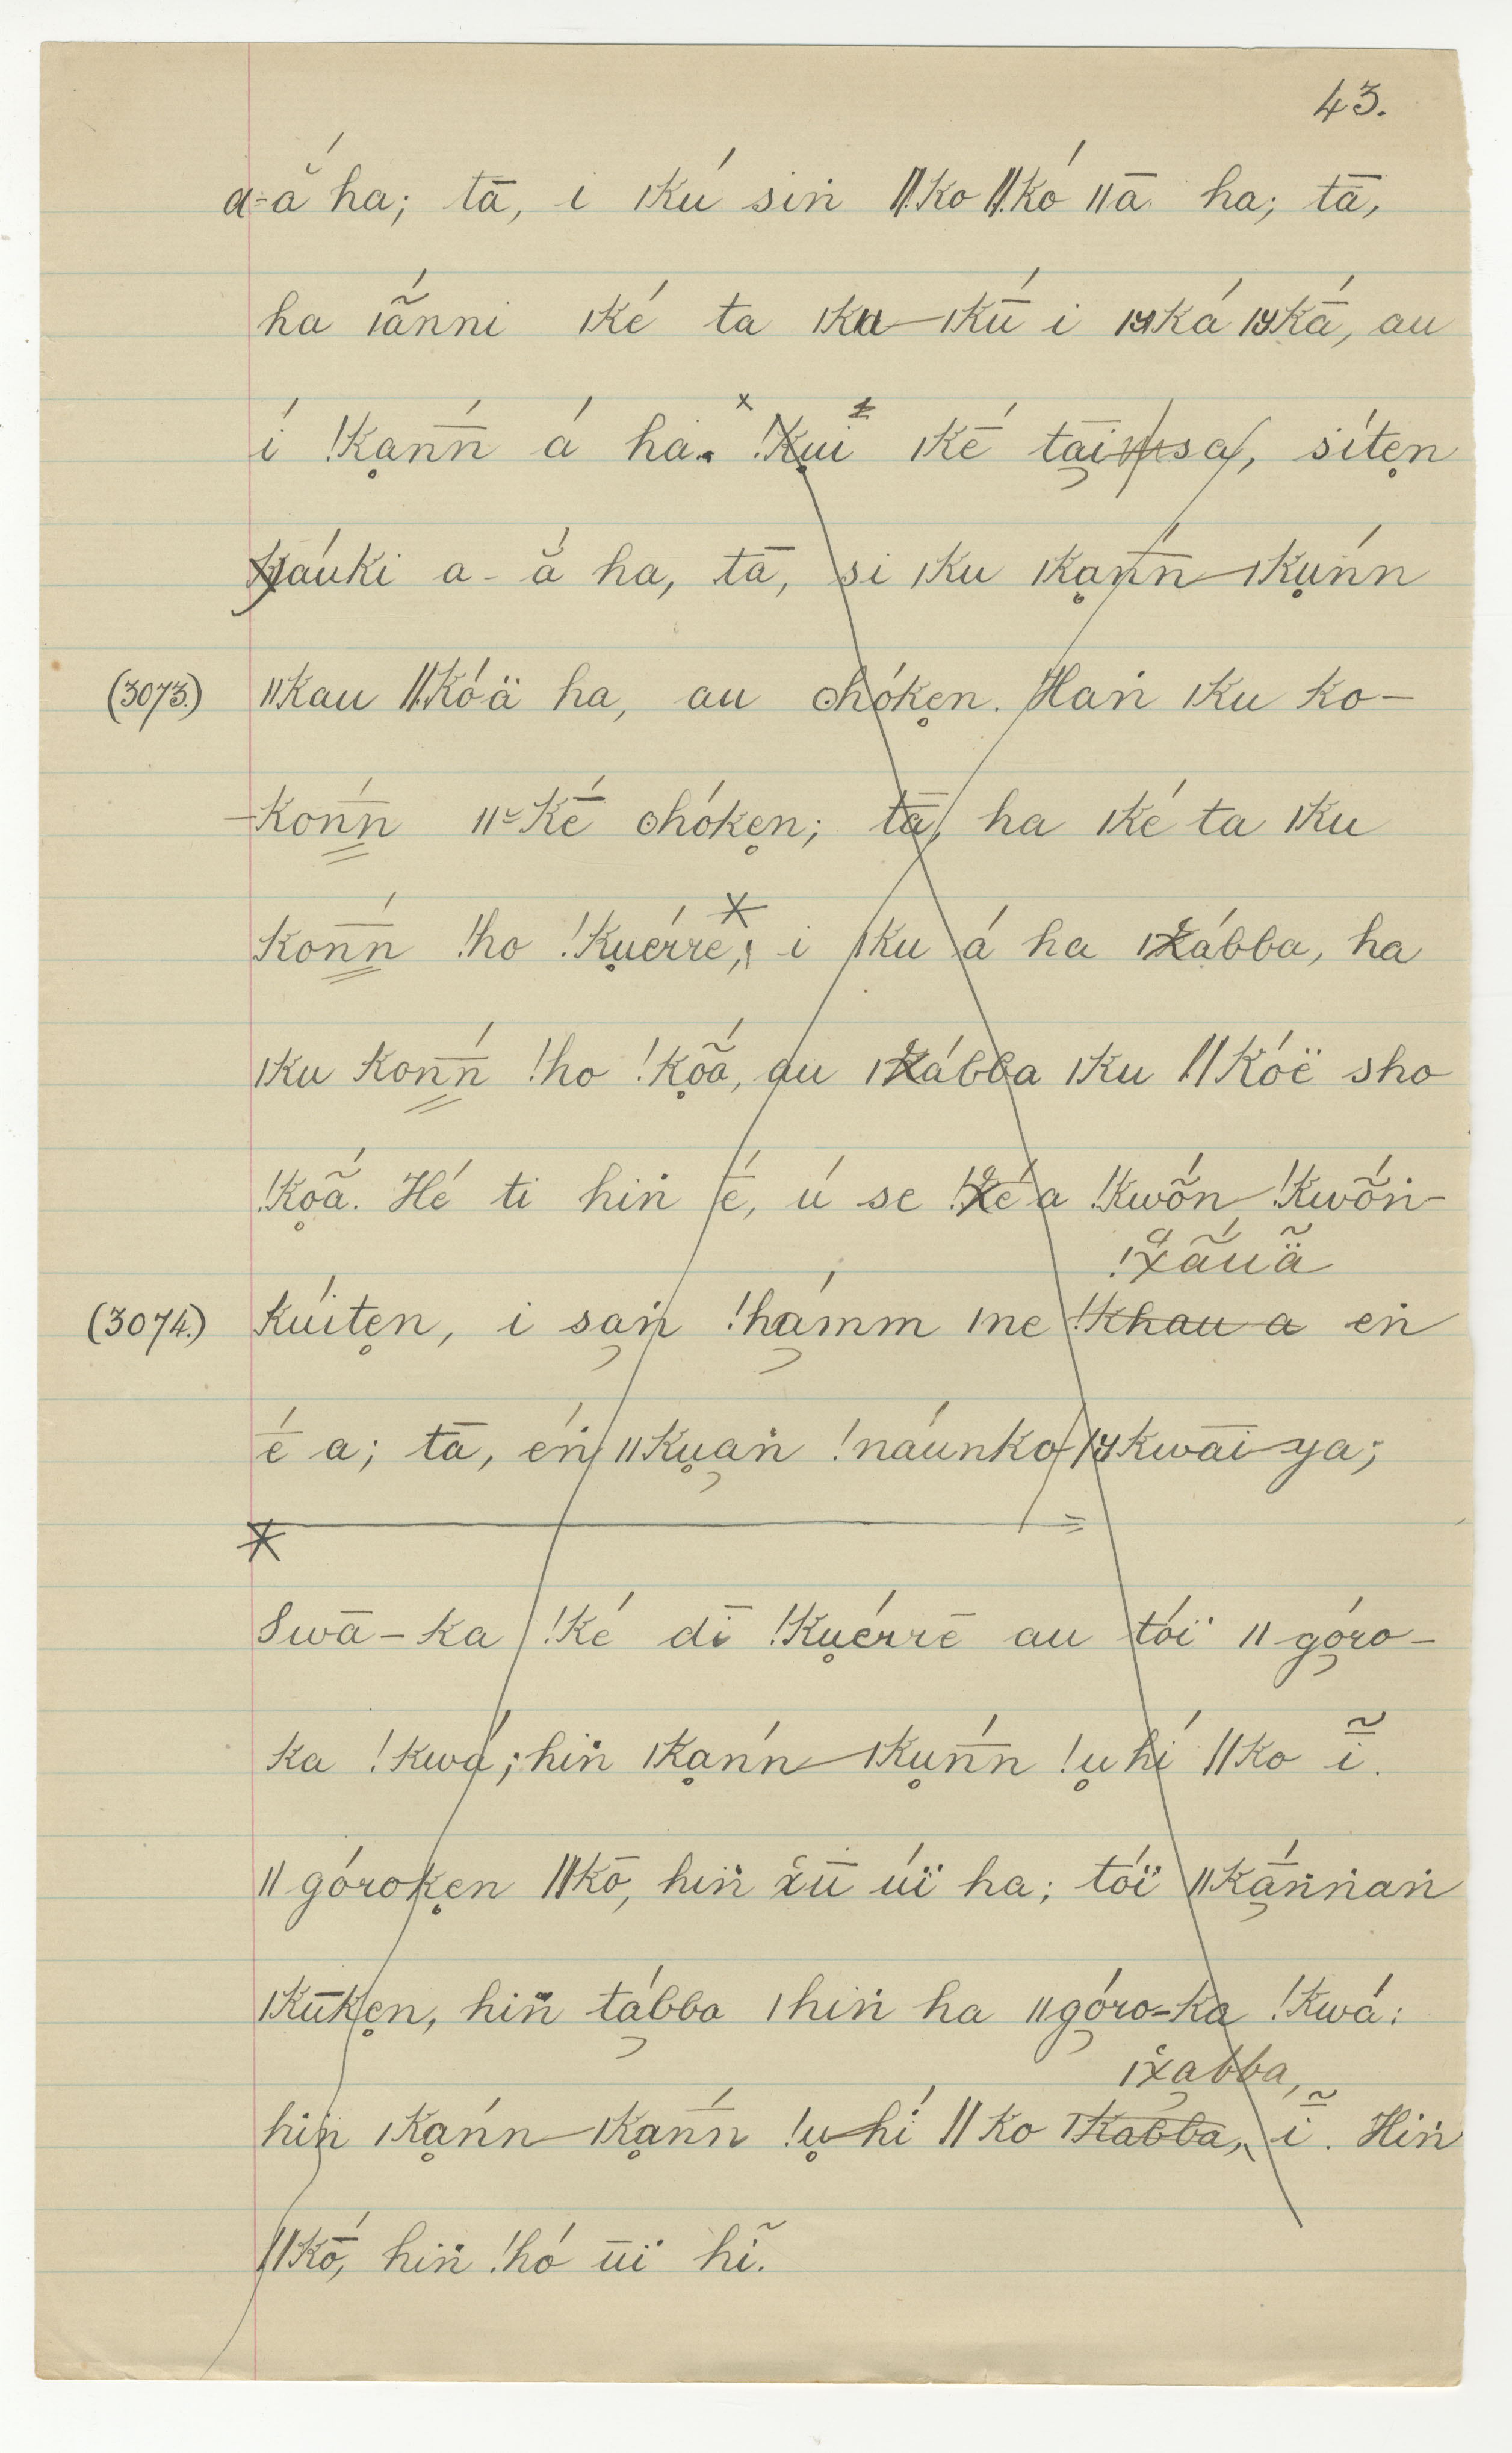 43.
a-ắ ha; tā, i ǀkú siṅ ǁko ǁkó ǁā ha; tā,
ha ǀã́nni ǀké ta ǀku-ǀkū́ i ká kā́, au
í !kạnn̄́ á ha. ǀkḗ tāi sítẹn
áuki a-ắ ha, tā, si ǀku ǀkạnn̄́-ǀkụńn
(3073.) ǁkau ǁkóä ha, au ʘhókẹn. Haṅ ǀku ko-
-konn̄́ ǁkḗ ʘhókẹn; tā, ha ǀké ta ǀku
konn̄́ !ho !kụérre, i ǀku á ha ábba, ha
ǀku konn̄́ !ho !kọã́, au ábba ǀku ǁkóë sho
!kọã́. Hé ti hiṅ ḗ, ú se a !kwõ̃́n !kwõ̃́ṅ-
!x̌ã́uã̈
(3074.) kúitẹn, i saṅ !hámm ǀne !khau a eṅ
ḗ a; tā, éṅ ǁkụaṅ !náunko kwāi ya;
Swā-ka !ké dī !kụérrē au tóï ǁgóro-
ka !kwá; hiṅ ǀkạńn-ǀkụnn̄́ !ụhí ǁko ĩ̄.
ǁgórokẹn ǁkō, hiṅ x̌ū úï ha; tóï ǁkā́ṅṅaṅ
ǀkūkẹn, hiṅ tábba ǀhiṅ ha ǁgóro-ka !kwá:
ǀx̌abba,
hiṅ ǀkạńn-ǀkạnn̄́ !ụhí ǁko ǀkabba, ĩ̄. Hiṅ
ǁkṓ, hiṅ !hó ūï hĩ.